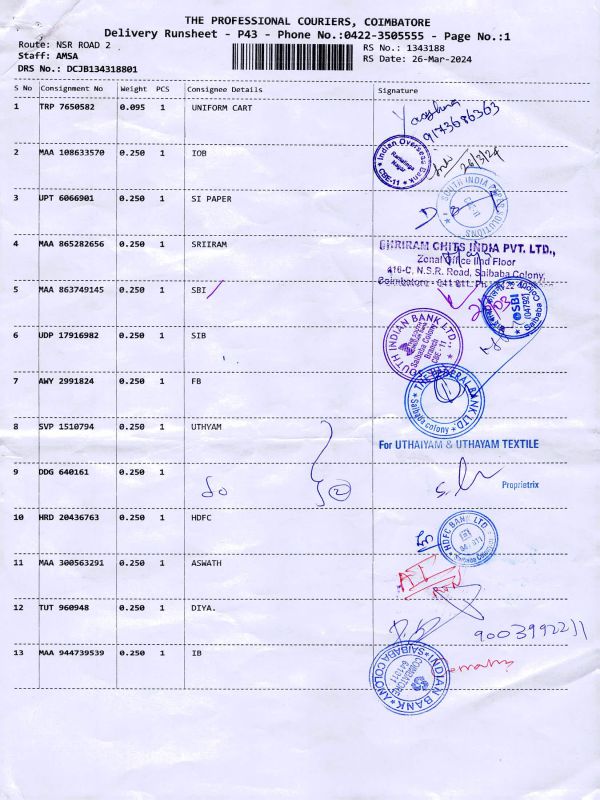 THE PROFESSIONAL COURIERS, COIMBATORE
Delivery Runsheet - P43 - Phone No.:0422-3505555 - Page No.:1
Route: NSR ROAD 2
RS No.: 1343188
Staff: AMSA
RS Date: 26-Mar-2024
DRS No.: DCJB134318801
S No Consignment No Weight PCS Consignee Details Signature
1 TRP 7650582 0.095 1 UNIFORM CART
9173686363
2 MAA 108633570 0.250 1 IOB
Indian Overseas Bank
Ramalinga Nagar
CBE-11
26/3/24
3 UPT 6066901 0.250 1 SI PAPER
SOUTH INDIA PAPER SOLUTIONS
4 MAA 865282656 0.250 1 SRIIRAM
SHRIRAM CHITS INDIA PVT. LTD.,
Zonal Office IInd Floor
416-C, N.S.R. Road, Saibaba Colony,
Coimbatore - 641 011.
5 MAA 863749145 0.250 1 SBI
SBI
Saibaba Colony
6 UDP 17916982 0.250 1 SIB
SOUTH INDIAN BANK LTD.
Saibaba Colony
Branch
CBE - 11
7 AWY 2991824 1 0.250 1 FB
THE FEDERAL BANK LTD.
Saibaba colony
8 SVP 1510794 0.250 1 UTHYAM
For UTHAIYAM & UTHAYAM TEXTILE
9 DDG 640161 0.250 1
do
2
Proprietrix
10 HRD 20436763 0.250 1 HDFC
HDFC BANK LTD.
11 MAA 300563291 0.250 1 ASWATH
12 TUT 960948 0.250 1 DIYA.
9003992211
13 MAA 944739539 0.250 1 IB
INDIAN BANK
SAIBABA COLONY
COIMBATORE
641011